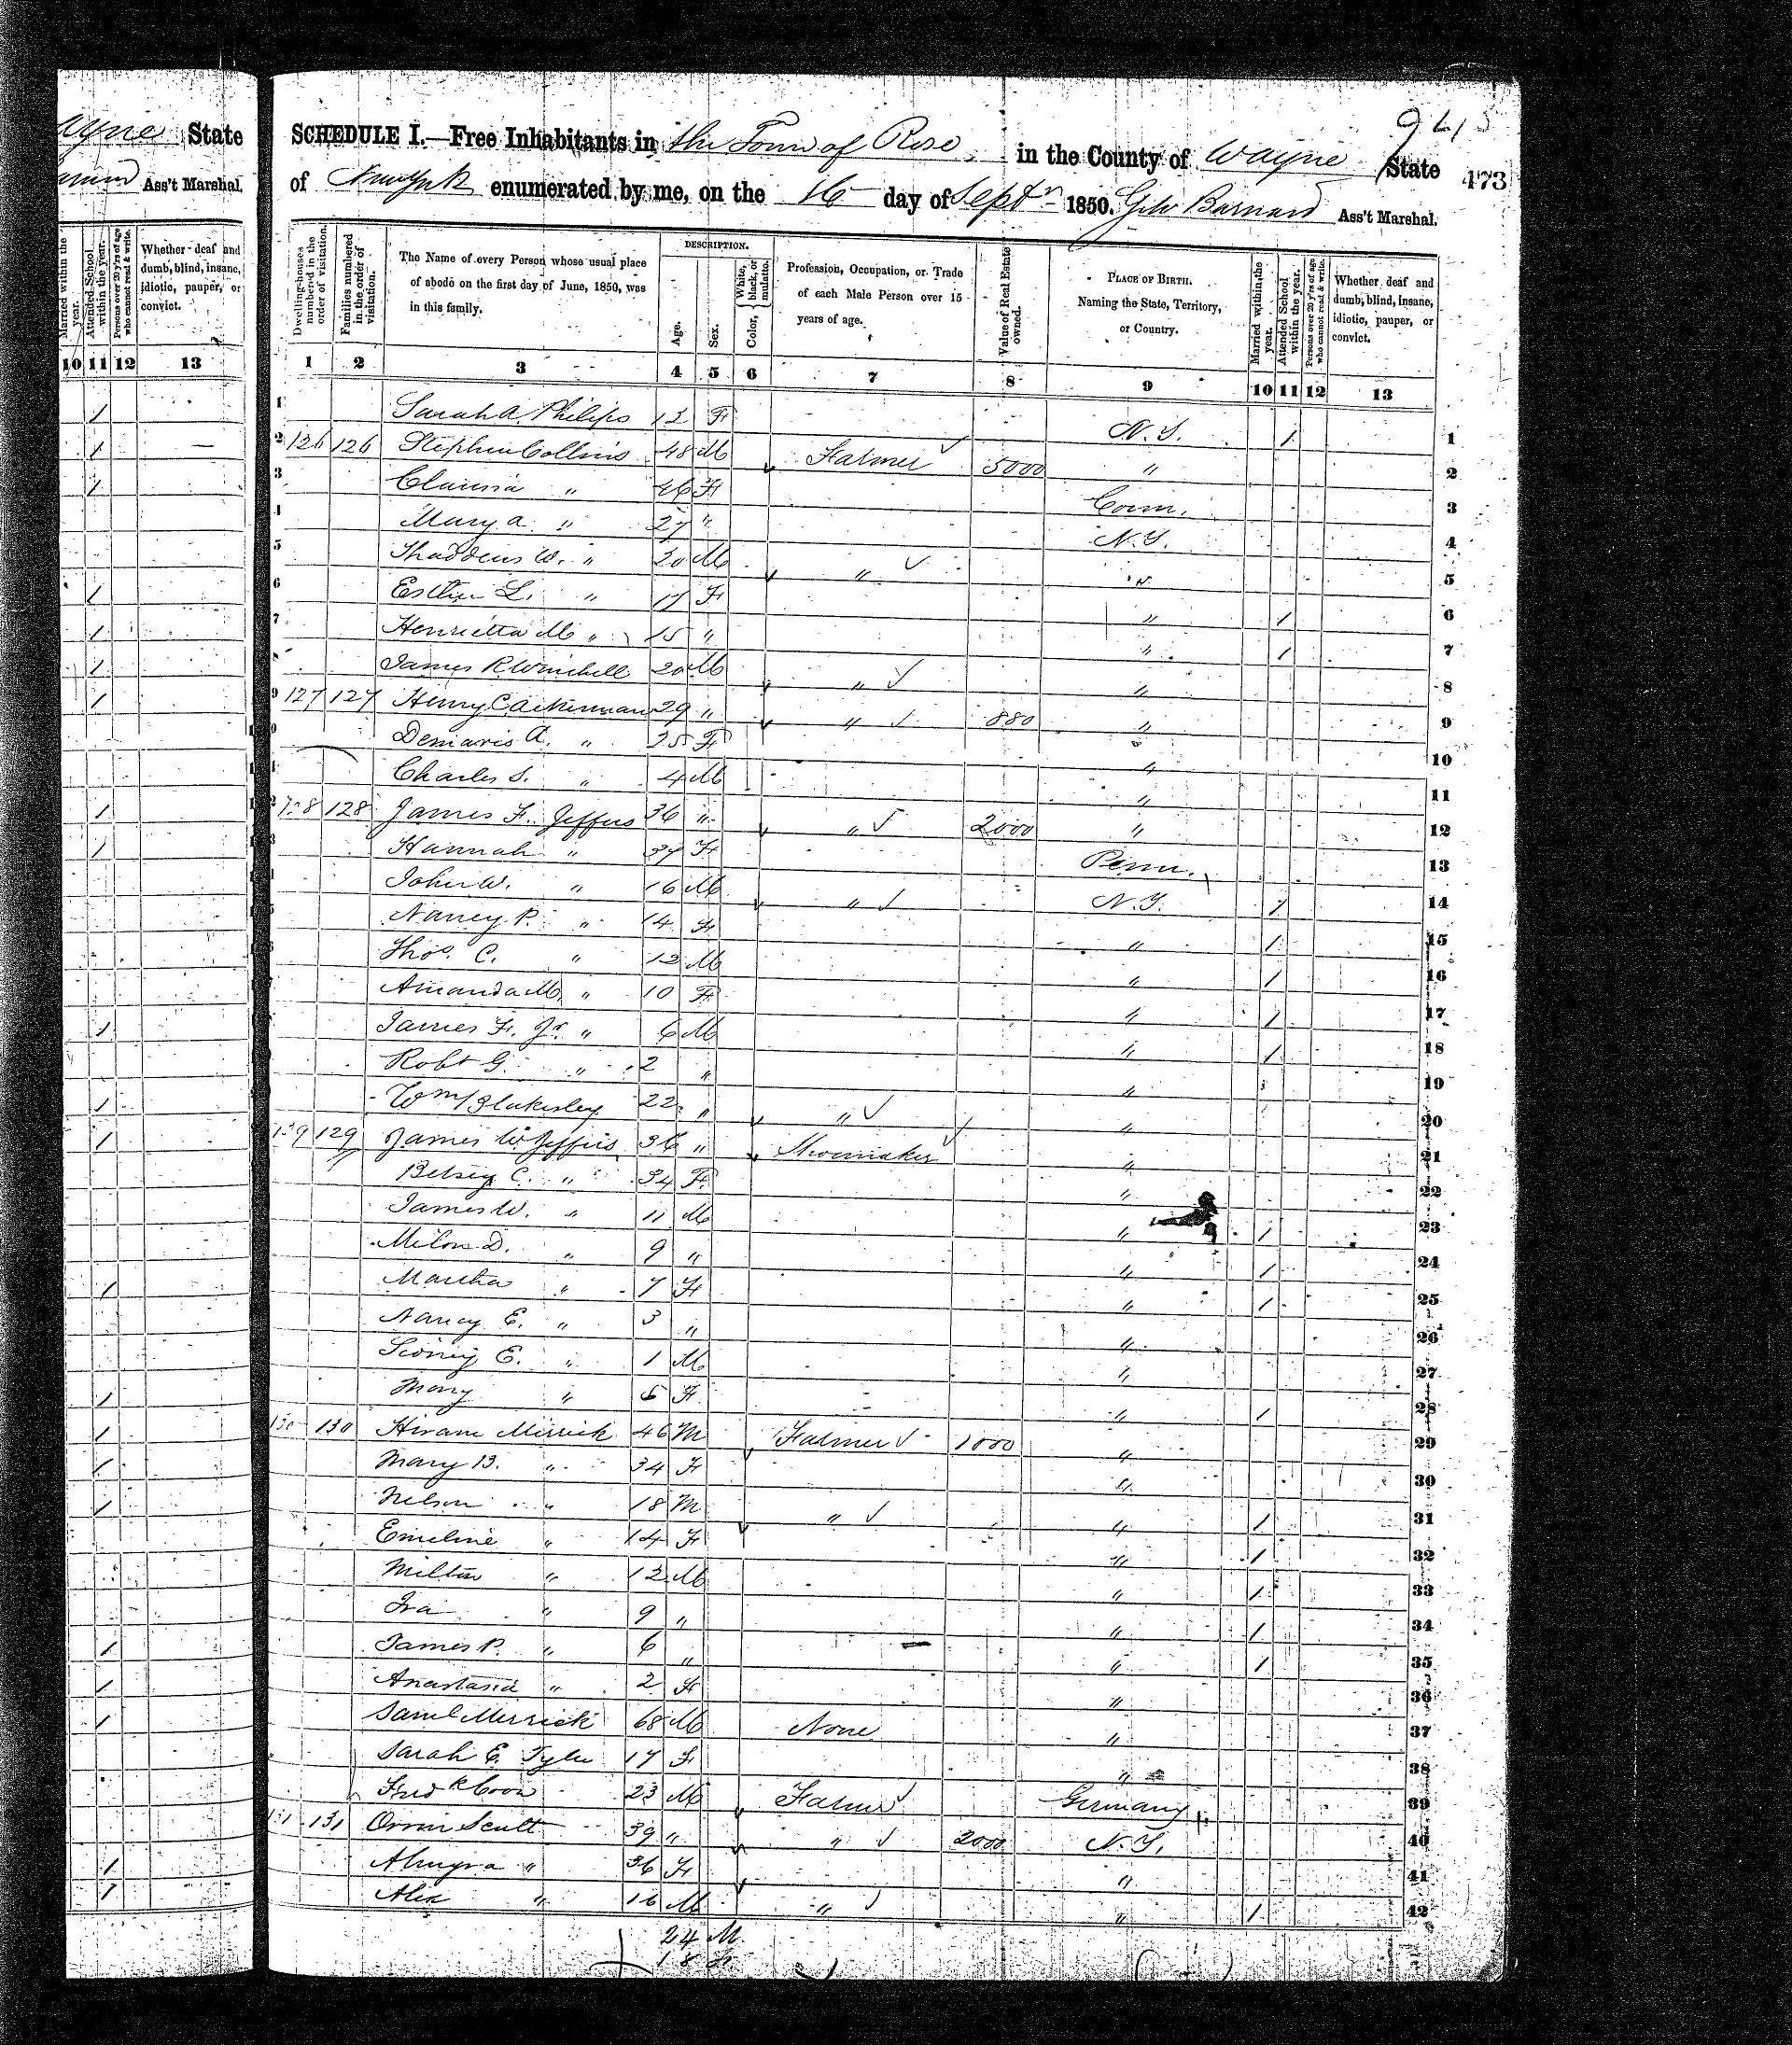 945
473
SCHEDULE I.—Free Inhabitants in the Town of Rose in the County of Wayne State
of New York enumerated by me, on the 16 day of Septr 1850. Geo Barnard Ass't Marshal.
ayne State
Ass't Marshal.
Married within the year.
Attended School within the year.
Persons over 20 y'rs of age who cannot read & write.
Whether deaf and dumb, blind, insane, idiotic, pauper, or convict.
10 11 12 13
Dwelling-houses numbered in the order of visitation.
Families numbered in the order of visitation.
The Name of every Person whose usual place of abode on the first day of June, 1850, was in this family.
DESCRIPTION.
Age.
Sex.
Color, White, black, or mulatto.
Profession, Occupation, or Trade of each Male Person over 15 years of age.
Value of Real Estate owned.
PLACE OF BIRTH. Naming the State, Territory, or Country.
Married within the year.
Attended School within the year.
Persons over 20 y'rs of age who cannot read & write.
Whether deaf and dumb, blind, insane, idiotic, pauper, or convict.
1 2 3 4 5 6 7 8 9 10 11 12 13
1 Sarah A. Philips 12 F N.Y. / 1
2 126 126 Stephen Collins 48 M Farmer 5000 " 2
3 " F Conn. 3
4 Mary A. " 27 " N.Y. 4
5 Thaddeus W. " 20 M " " 5
6 Esther L. " 17 F " / 6
7 Henrietta M " 15 " " / 7
8 James R Winchell 20 M " " 8
9 127 127 Henry C Ackerman 29 " " 880 " 9
10 Demaris A. " 25 F " 10
11 Charles S. " 4 M " 11
12 128 128 James F. Jeffers 36 " " 2000 " 12
13 Hannah " 37 F Penn. 13
14 John W. " 16 M " N.Y. / 14
15 Nancy P. " 14 F " / 15
16 Thos. C. " 12 M " / 16
17 Amanda M " 10 F " / 17
18 James F. Jr. " 6 M " / 18
19 Robt G. " 2 " " 19
20 Wm Blakesley 22 " " " 20
21 129 129 James W. Jeffers 36 " Shoemaker " 21
22 Betsey C. " 34 F " 22
23 James W. " 11 M " / 23
24 Milon D. " 9 " " / 24
25 Martha " 7 F " / 25
26 Nancy E. " 3 " " 26
27 Sidney E. " 1 M " 27
28 Mary " F " / 28
29 130 130 Hiram Mirrick 46 M Farmer 1000 " 29
30 Mary B. " 34 F " 30
31 Nelson " 18 M " " / 31
32 Emeline " 14 F " / 32
33 Milton " 12 M " / 33
34 Ira " 9 " " / 34
35 James P. " 6 " " / 35
36 Anastasia " 2 F " 36
37 Saml Merrick 68 M None " 37
38 Sarah E. Tyler 17 F " 38
39 Fredk Coon 23 M Farmer Germany 39
40 131 131 Orrin Scutt 39 " " 2000 N.Y. 40
41 Almyra " 36 F " 41
42 Alex " 16 M " " / 42
24 M.
18 F.